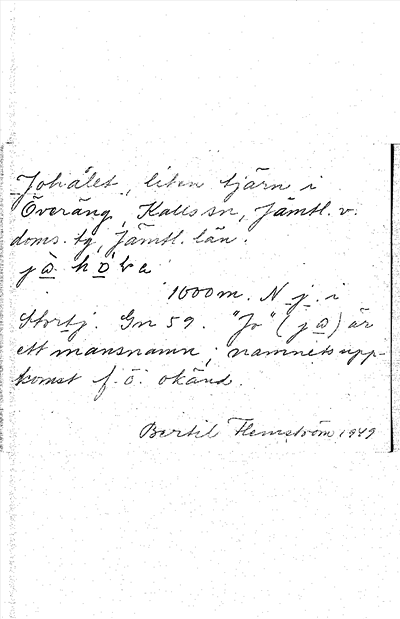 Johålet, liten tjärn i
Överäng, Kalls sn, Jämtl. v.
doms. tg, Jämtl. län.
1000 m. N j. i
Stortj. Gn 59. "Jo" (jω) är
ett mansnamn; namnets upp-
komst f. ö. okänd.
Bertil Flemström 1949